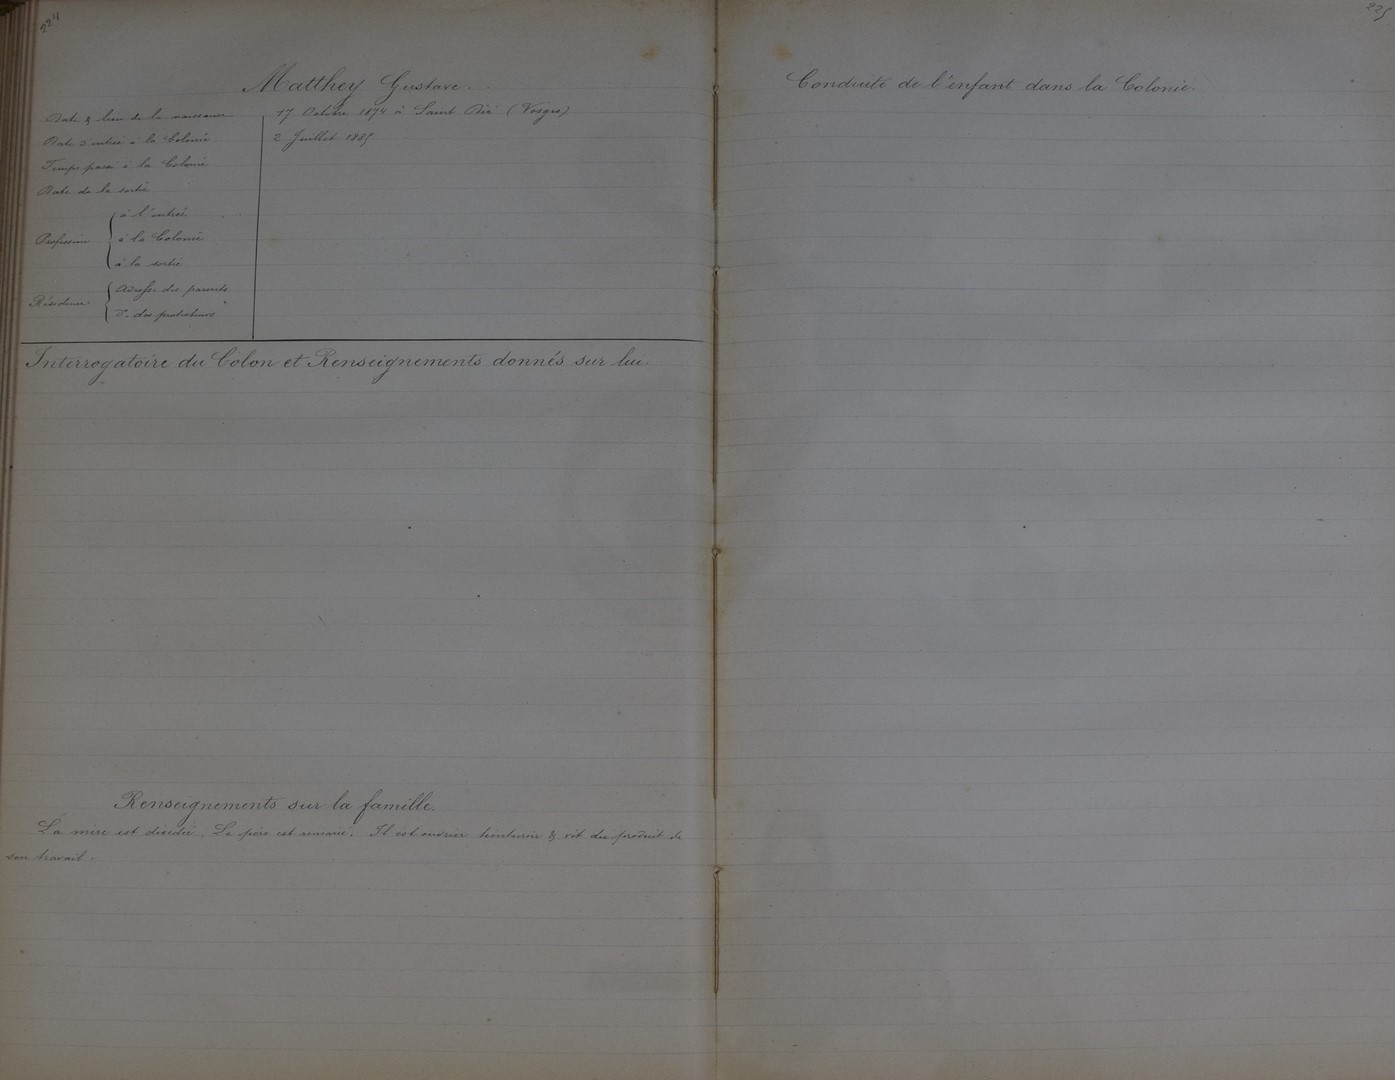 224
Matthey Gustave.
Date & lieu de la naissance 17 Octobre 1874 à Saint Dié (Vosges)
Date d'entrée à la Colonie 2 Juillet 1885
Temps passé à la Colonie
Date de la sortie
Profession
à l'entrée
à la Colonie
à la sortie
Résidence
Adresse des parents
D° des protecteurs
Interrogatoire du Colon et Renseignements donnés sur lui.
Renseignements sur la famille.
La mère est décédée. Le père est remarié. Il est ouvrier teinturier & vit du produit de
son travail.
225
Conduite de l'enfant dans la Colonie.